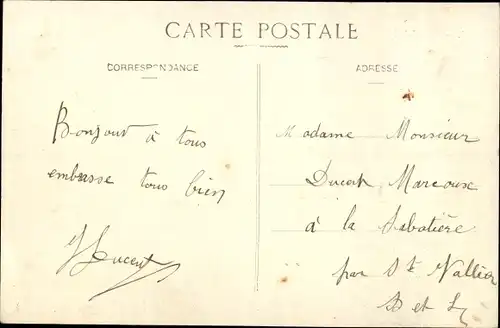 CARTE POSTALE
CORRESPONDANCE
ADRESSE
Bonjour à tous
embrasse tous bien
Madame Monsieur
Marcoux
à la Sabotière
par St Vallier
S et L